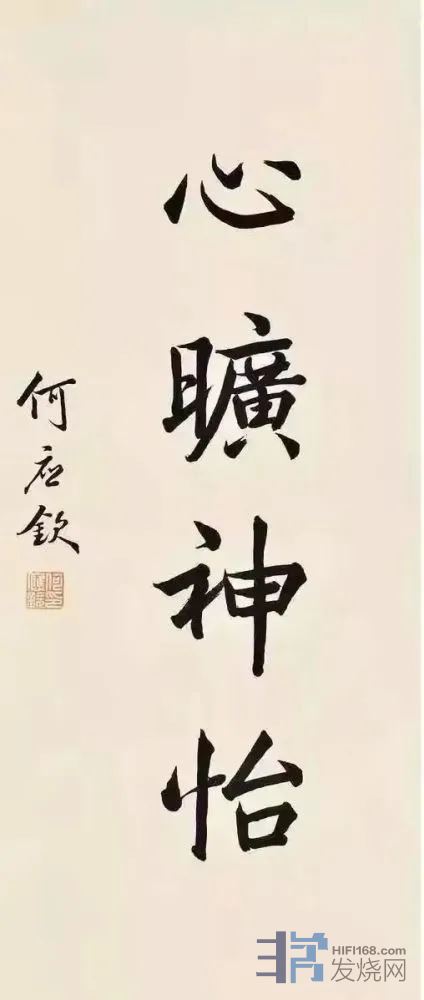 心曠神怡
何应欽
HIFI168.com
发烧网